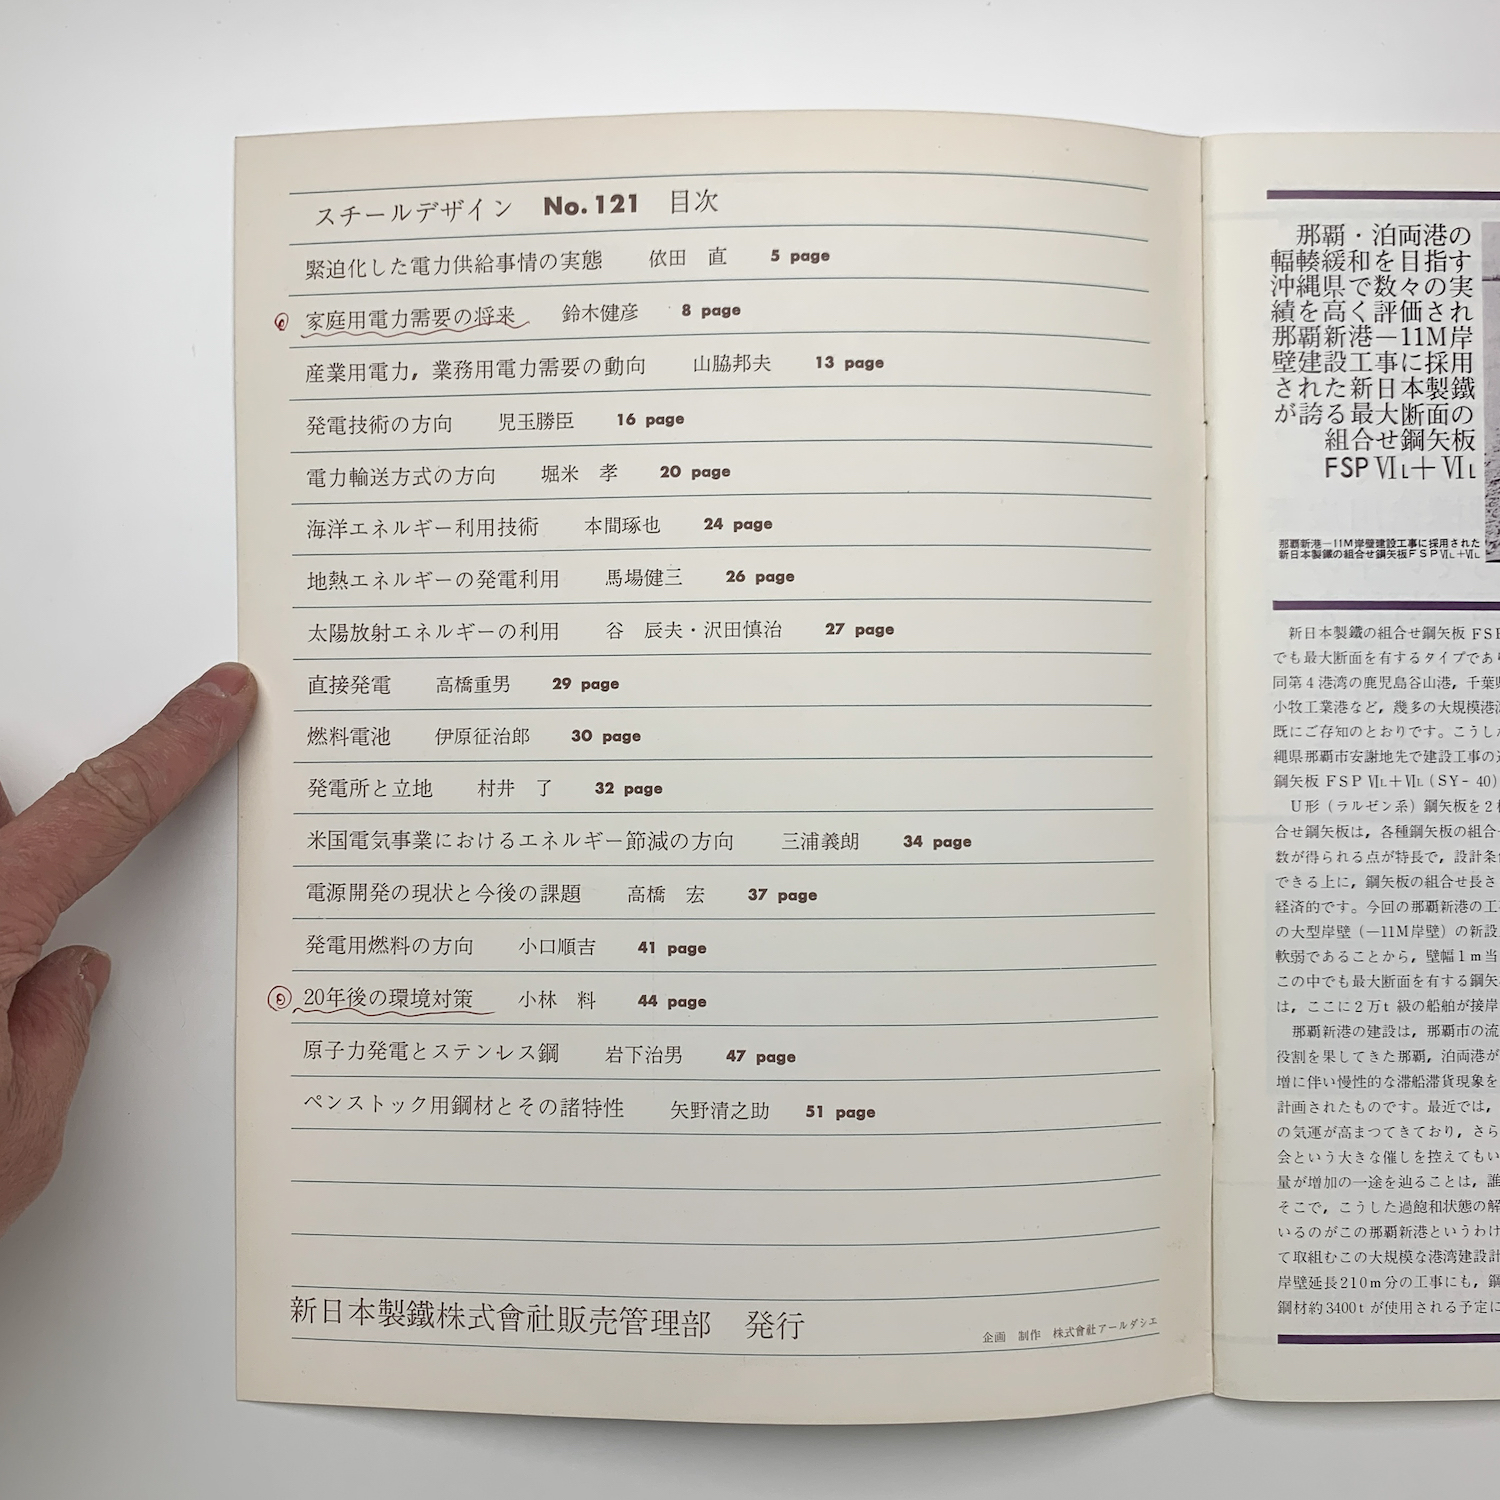 スチールデザイン No.121 目次
緊迫化した電力供給事情の実態 依田 直 5 page
家庭用電力需要の将来 鈴木健彦 8 page
産業用電力，業務用電力需要の動向 山脇邦夫 13 page
発電技術の方向 児玉勝臣 16 page
電力輸送方式の方向 堀米 孝 20 page
海洋エネルギー利用技術 本間琢也 24 page
地熱エネルギーの発電利用 馬場健三 26 page
太陽放射エネルギーの利用 谷 辰夫・沢田慎治 27 page
直接発電 高橋重男 29 page
燃料電池 伊原征治郎 30 page
発電所と立地 村井 了 32 page
米国電気事業におけるエネルギー節減の方向 三浦義朗 34 page
電源開発の現状と今後の課題 高橋 宏 37 page
発電用燃料の方向 小口順吉 41 page
20年後の環境対策 小林 料 44 page
原子力発電とステンレス鋼 岩下治男 47 page
ペンストック用鋼材とその諸特性 矢野清之助 51 page
新日本製鐵株式會社販売管理部 発行
企画 制作 株式會社アールダシエ
那覇・泊両港の
輻輳緩和を目指す
沖縄県で数々の実
績を高く評価され
那覇新港－11M岸
壁建設工事に採用
された新日本製鐵
が誇る最大断面の
組合せ鋼矢板
FSP ⅥL＋ⅥL
那覇新港－11M岸壁建設工事に採用された
新日本製鐵の組合せ鋼矢板FSPⅥL＋ⅥL
新日本製鐵の組合せ鋼矢板 FSP
でも最大断面を有するタイプであり
同第4港湾の鹿児島谷山港，千葉県
小牧工業港など，幾多の大規模港湾
既にご存知のとおりです。こうした
縄県那覇市安謝地先で建設工事の進
鋼矢板 FSP ⅥL＋ⅥL（SY- 40）
U形（ラルゼン系）鋼矢板を2枚
合せ鋼矢板は，各種鋼矢板の組合せ
数が得られる点が特長で，設計条件
できる上に，鋼矢板の組合せ長さ
経済的です。今回の那覇新港の工事
の大型岸壁（－11M岸壁）の新設
軟弱であることから，壁幅1m当
この中でも最大断面を有する鋼矢
は，ここに2万t 級の船舶が接岸
那覇新港の建設は，那覇市の流
役割を果してきた那覇，泊両港が
増に伴い慢性的な滞船滞貨現象を
計画されたものです。最近では，
の気運が高まつてきており，さら
会という大きな催しを控えてもい
量が増加の一途を辿ることは，誰
そこで，こうした過飽和状態の解
いるのがこの那覇新港というわけ
て取組むこの大規模な港湾建設計
岸壁延長210m分の工事にも，鋼
鋼材約3400tが使用される予定に